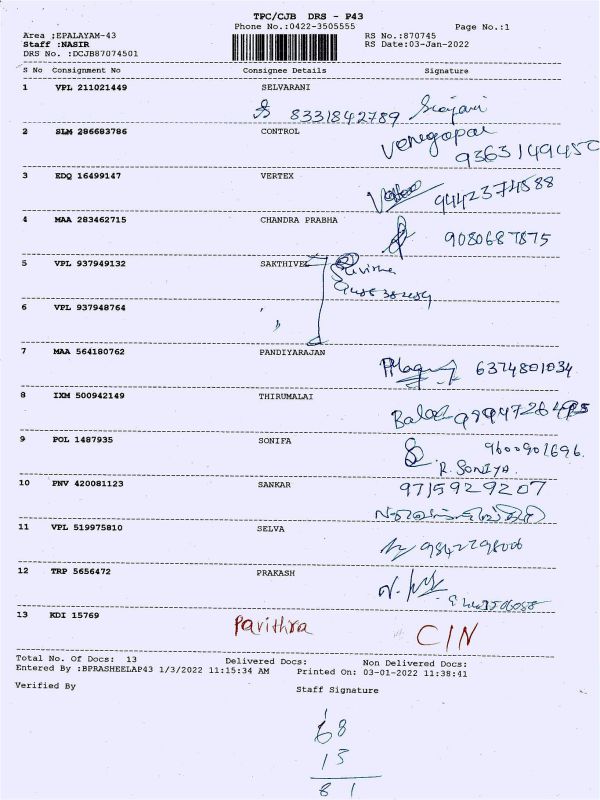 TPC/CJB DRS - P43
Phone No.:0422-3505555 Page No.:1
Area :EPALAYAM-43 RS No.:870745
Staff :NASIR RS Date:03-Jan-2022
DRS No. :DCJB87074501
S No Consignment No Consignee Details Signature
1 VPL 211021449 SELVARANI
8331842789
2 SLM 286683786 CONTROL
Venegopal
9363149450
3 EDQ 16499147 VERTEX
9442374588
4 MAA 283462715 CHANDRA PRABHA
9080687875
5 VPL 937949132 SAKTHIVEL
6 VPL 937948764
7 MAA 564180762 PANDIYARAJAN
6374801034
8 IXM 500942149 THIRUMALAI
9 POL 1487935 SONIFA
9600901696
R. SONIYA
10 PNV 420081123 SANKAR
9715929207
11 VPL 519975810 SELVA
12 TRP 5656472 PRAKASH
13 KDI 15769
Pavithra C/N
Total No. Of Docs: 13 Delivered Docs: Non Delivered Docs:
Entered By :BPRASHEELAP43 1/3/2022 11:15:34 AM Printed On: 03-01-2022 11:38:41
Verified By Staff Signature
1
68
13
81